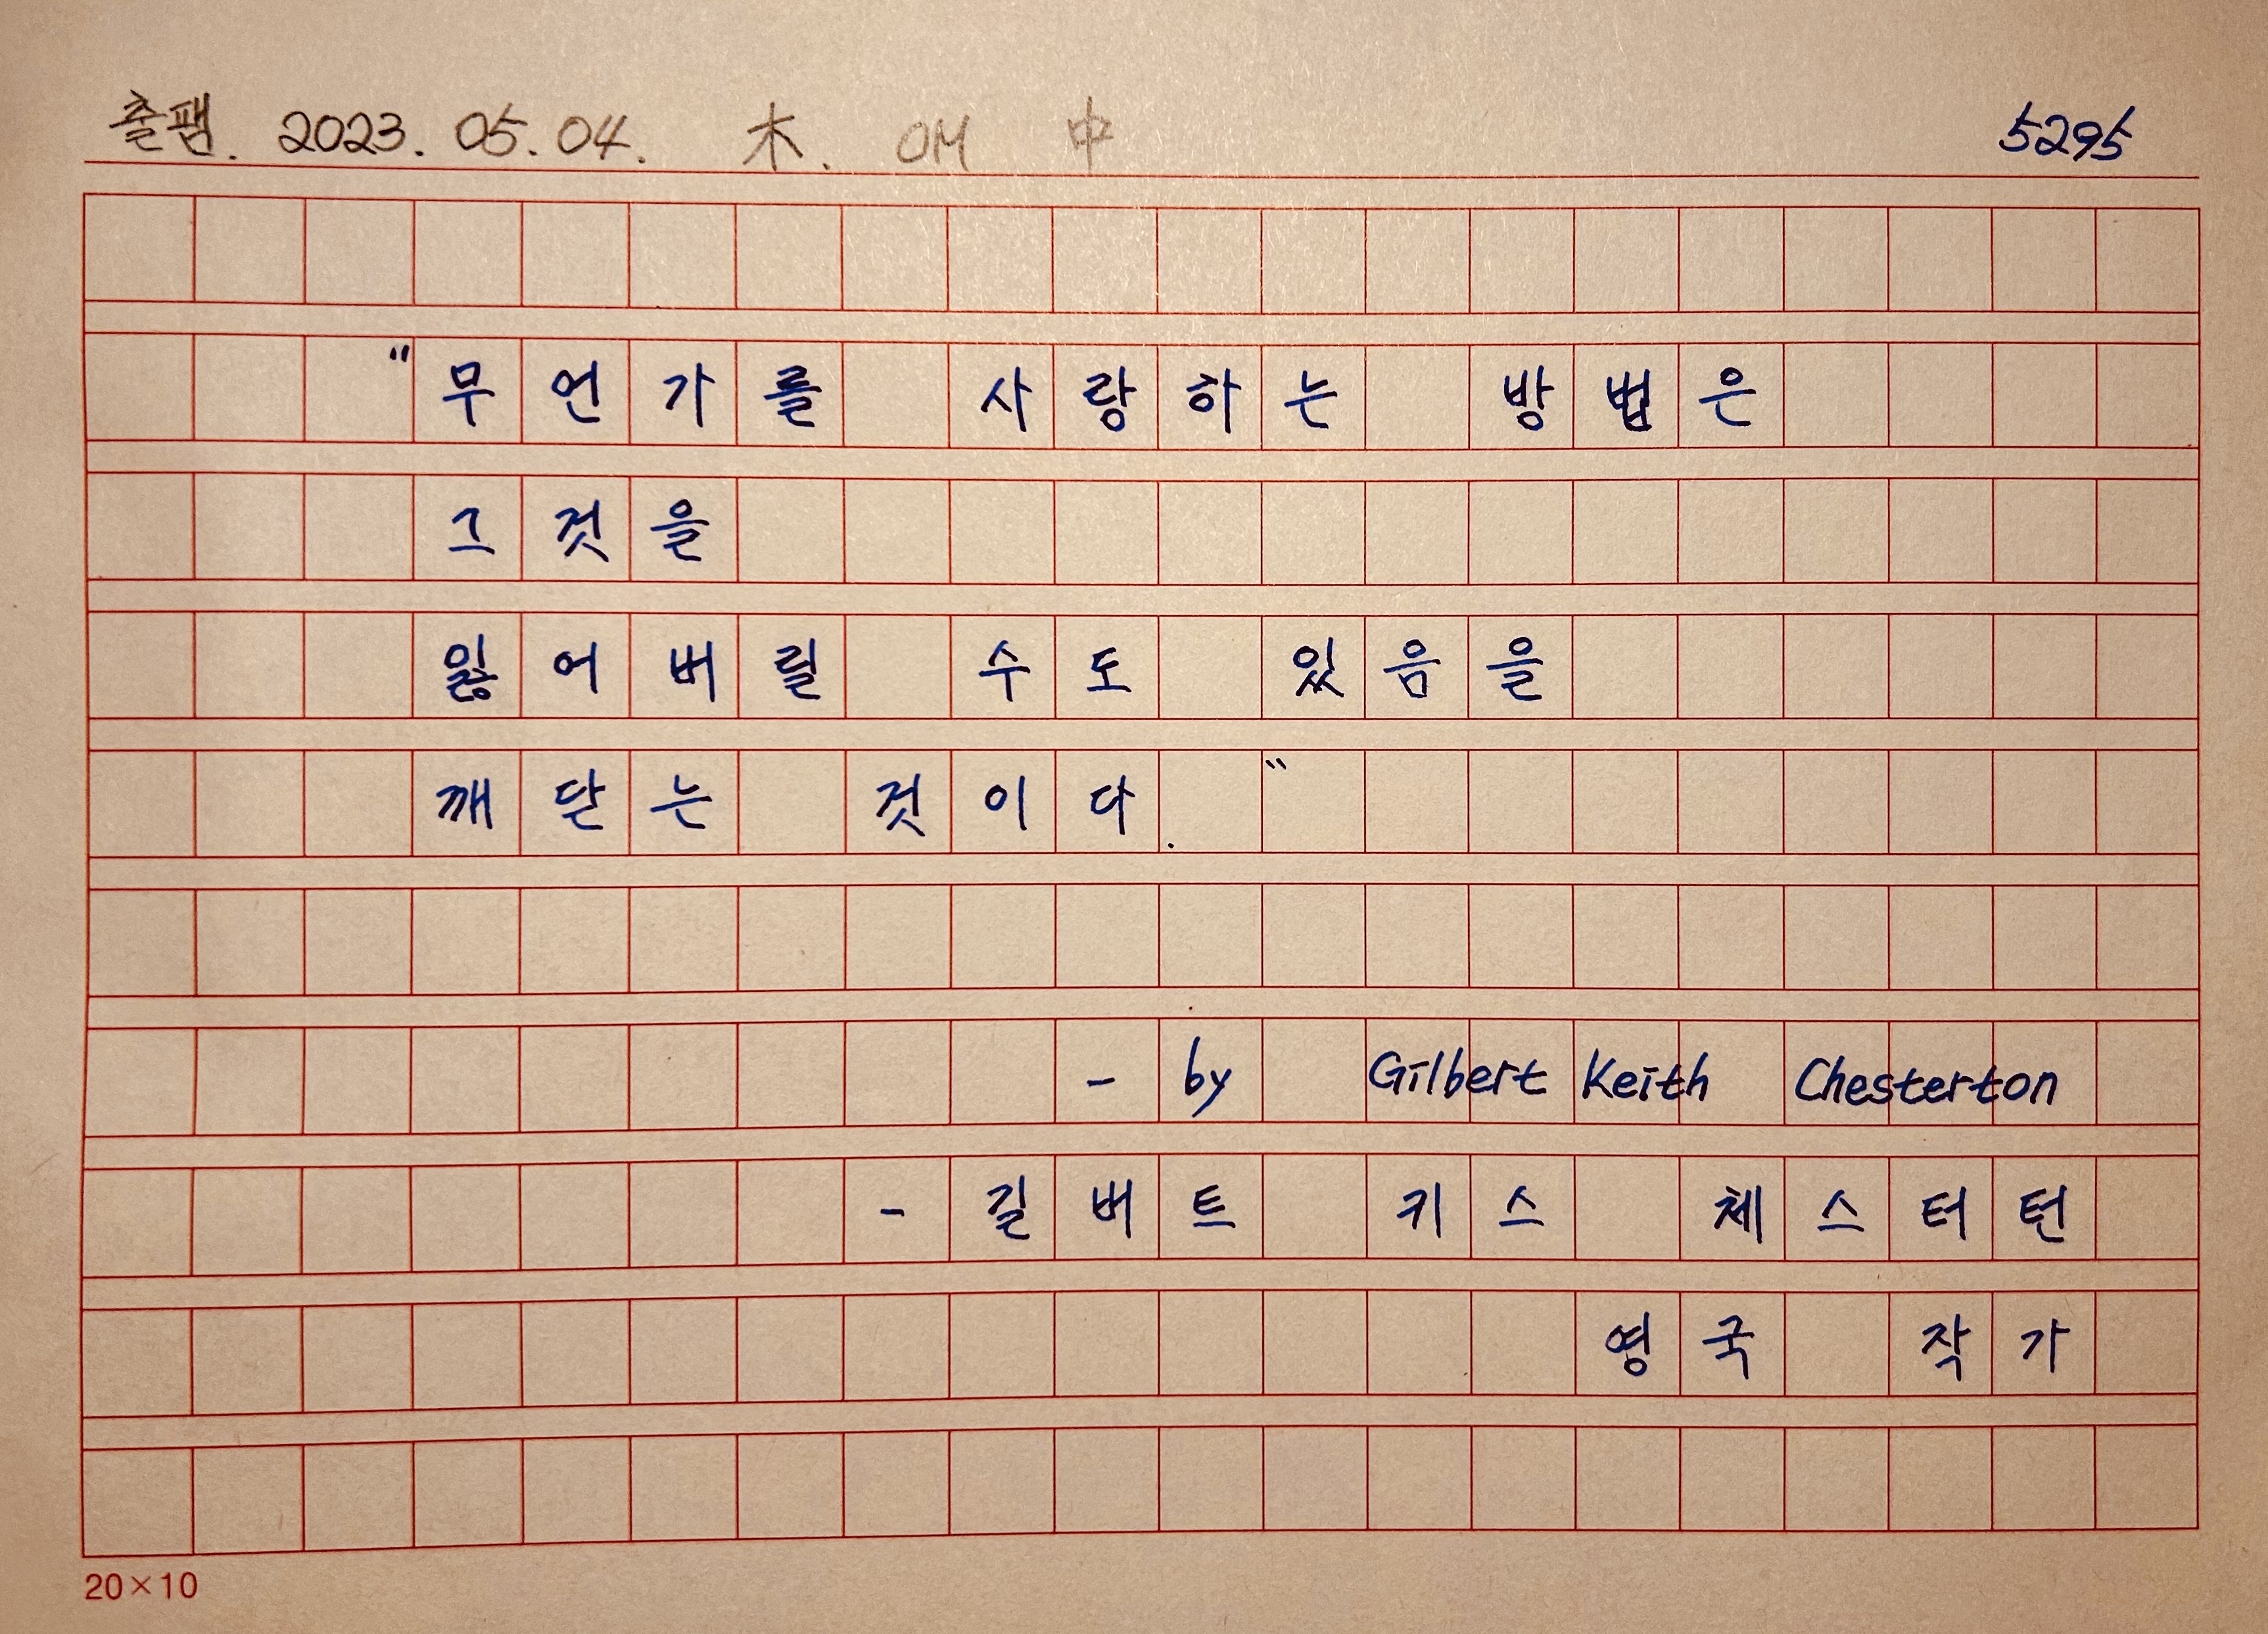 출팸. 2023. 05. 04. 木. OM 中 5295
"무언가를 사랑하는 방법은
그것을
잃어버릴 수도 있음을
깨닫는 것이다."
- by Gilbert Keith Chesterton
- 길버트 키스 체스터턴
영국 작가
20×10